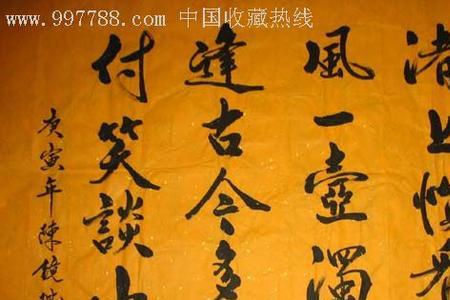 www.997788.com 中国收藏热线
渚上慣看
風一壺濁
逢古今多
付笑談中
庚寅年陳鏡